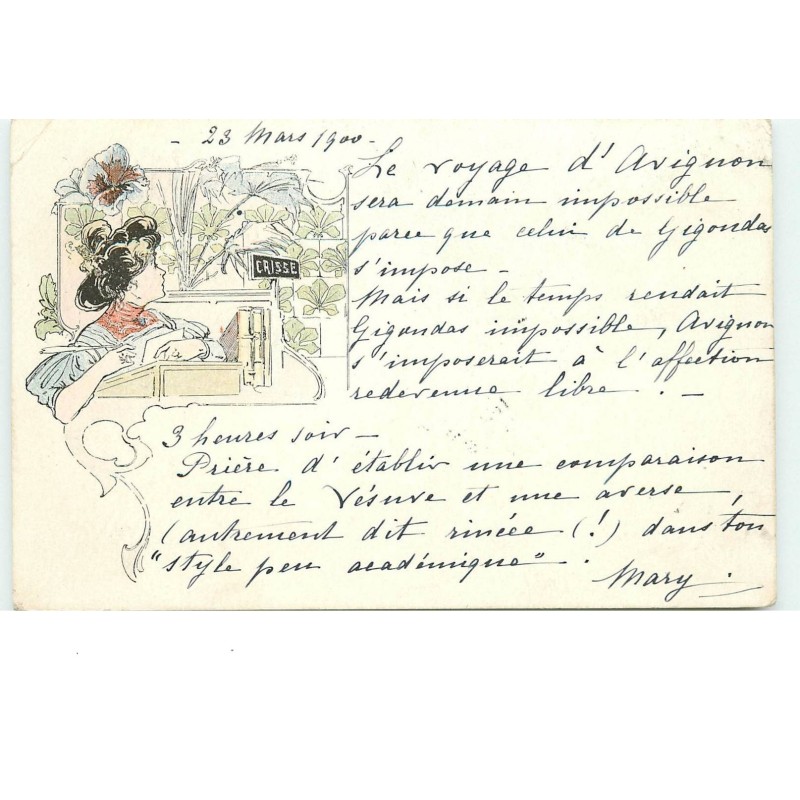 - 23 Mars 1900 -
Le voyage d'Avignon
sera demain impossible
parce que celui de Gigondas
s'impose -
Mais si le temps rendait
Gigondas impossible, Avignon
s'imposerait à l'affection
redevenue libre . -
CAISSE
3 heures soir -
Prière d'établir une comparaison
entre le Vésuve et une averse,
(autrement dit rincée (!) dans ton
"style peu académique".
Mary